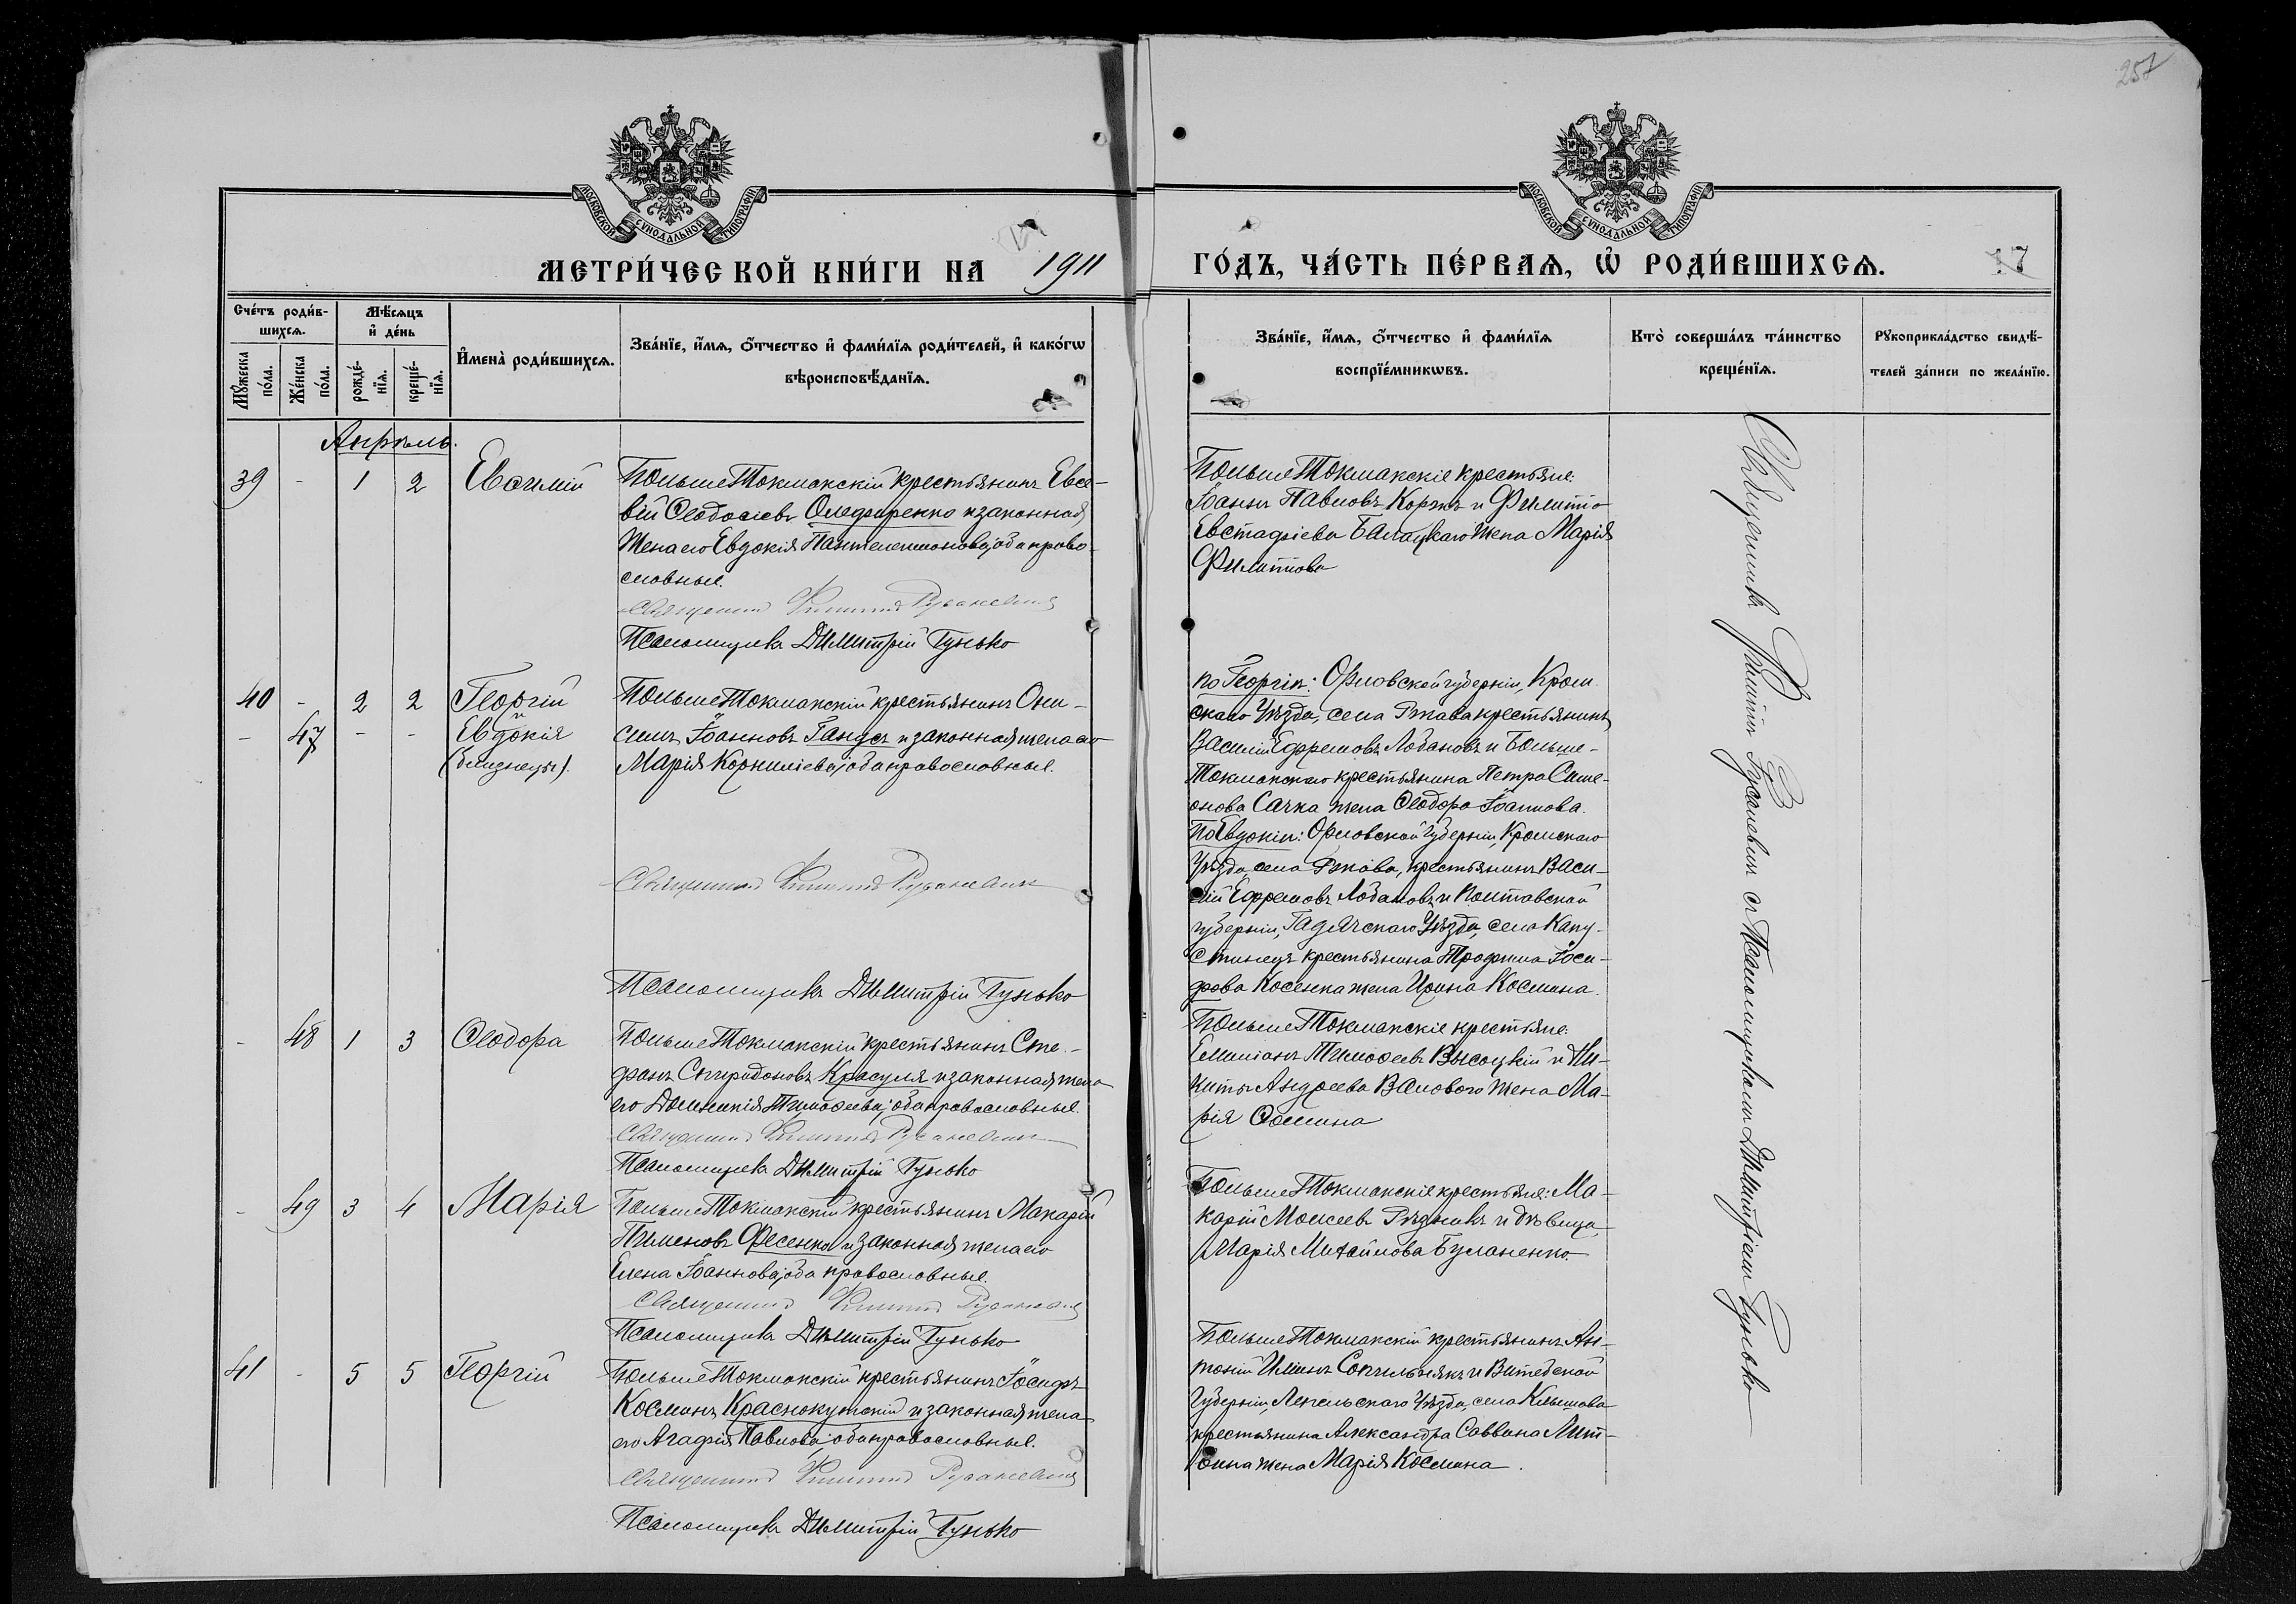 257
МОСКОВСКОЙ СѴНОДАЛЬНОЙ ТИПОГРАФІИ
МОСКОВСКОЙ СѴНОДАЛЬНОЙ ТИПОГРАФІИ
МЕТРИ́ЧЕСКОЙ КНИ́ГИ НА 1911
ГО́ДЪ, ЧА́СТЬ ПЕ́РВАѦ, Ѡ҆ РОДИ́ВШИХСѦ.
17
Сче́тъ роди́в-
шихсѧ.
Мꙋ́жеска по́ла.
Же́нска по́ла.
Мѣ́сѧцъ
и҆ де́нь
рожде́-нїѧ.
креще́-нїѧ.
И҆мена̀ роди́вшихсѧ.
Зва́нїе, и҆́мѧ, ѻ҆́тчество и҆ фами́лїѧ роди́телей, и҆ како́гѡ
вѣроисповѣ́данїѧ.
Зва́нїе, и҆́мѧ, ѻ҆́тчество и҆ фами́лїѧ
воспрїе́мникѡвъ.
Кто̀ соверша́лъ та́инство
креще́нїѧ.
Рꙋкоприкла́дство свидѣ́-
телей за́писи по жела́нїю.
Апрѣль.
39 - 1 2 Евѳимій
БольшеТокмакскій крестьянинъ Евсе-
вій Ѳеодосіевъ Олефиренко и законная
жена его Евдокія Пантелеимонова, оба право-
славные.
Священникъ Филиппъ Русаневичъ
Псаломщикъ Димитрій Гунько
БольшеТокмакскіе крестьяне:
Іоаннъ Павловъ Коржъ и Филиппа
Евстафіева Балацкаго жена Марія
Филиппова
40 - 2 2 Георгій
и
- 47 - - Евдокія
(близнецы).
БольшеТокмакскій крестьянинъ Они-
симъ Іоанновъ Гандъ и законная жена его
Марія Корниліева, оба православные.
Священникъ Филиппъ Русаневичъ
Псаломщикъ Димитрій Гунько
по Георгіи: Орловской губерніи, Кром-
скаго Уѣзда, села Ржава крестьянинъ
Василій Ефремовъ Лобановъ и Больше-
Токмакскаго крестьянина Петра Симе-
онова Сачка жена Ѳеодора Іоаннова.
По Евдокіи: Орловской Губерніи, Кромскаго
Уѣзда, села Ржава, крестьянинъ Васи-
лій Ефремовъ Лобановъ и Полтавской
губерніи, Гадячскаго Уѣзда, села Капу-
стинецъ крестьянина Трофима Іоси-
фова Косенка жена Ирина Космина.
- 48 1 3 Ѳеодора
БольшеТокмакскій крестьянинъ Сте-
фанъ Спиридоновъ Красуля и законная жена
его Домникія Тимоѳеева, оба православные.
Священникъ Филиппъ Русаневичъ
Псаломщикъ Димитрій Гунько
БольшеТокмакскіе крестьяне:
Емиліанъ Тимоѳеевъ Высоцкій и Ни-
киты Андреева Валового жена Ма-
рія Ѳомина
- 49 3 4 Марія
БольшеТокмакскій крестьянинъ Макарій
Пименовъ Фесенко и законная жена его
Елена Іоаннова, оба православные.
Священникъ Филиппъ Русаневичъ
Псаломщикъ Димитрій Гунько
БольшеТокмакскіе крестьяне: Ма-
карій Моисеевъ Рѣзникъ и дѣвица
Марія Михайлова Буланенко
41 - 5 5 Георгій
БольшеТокмакскій крестьянинъ Іосифъ
Косминъ Краснокутскій и законная жена
его Агафія Павлова, оба православные.
Священникъ Филиппъ Русаневичъ
Псаломщикъ Димитрій Гунько
БольшеТокмакскій крестьянинъ Ан-
тоній Иліинъ Сопильнякъ и Витебской
Губерніи, Лепельскаго Уѣзда, села
крестьянина Александра Саввина Лит-
вина жена Марія Космина.
Священникъ Филиппъ Русаневичъ съ Псаломщикомъ Димитріемъ Гунько